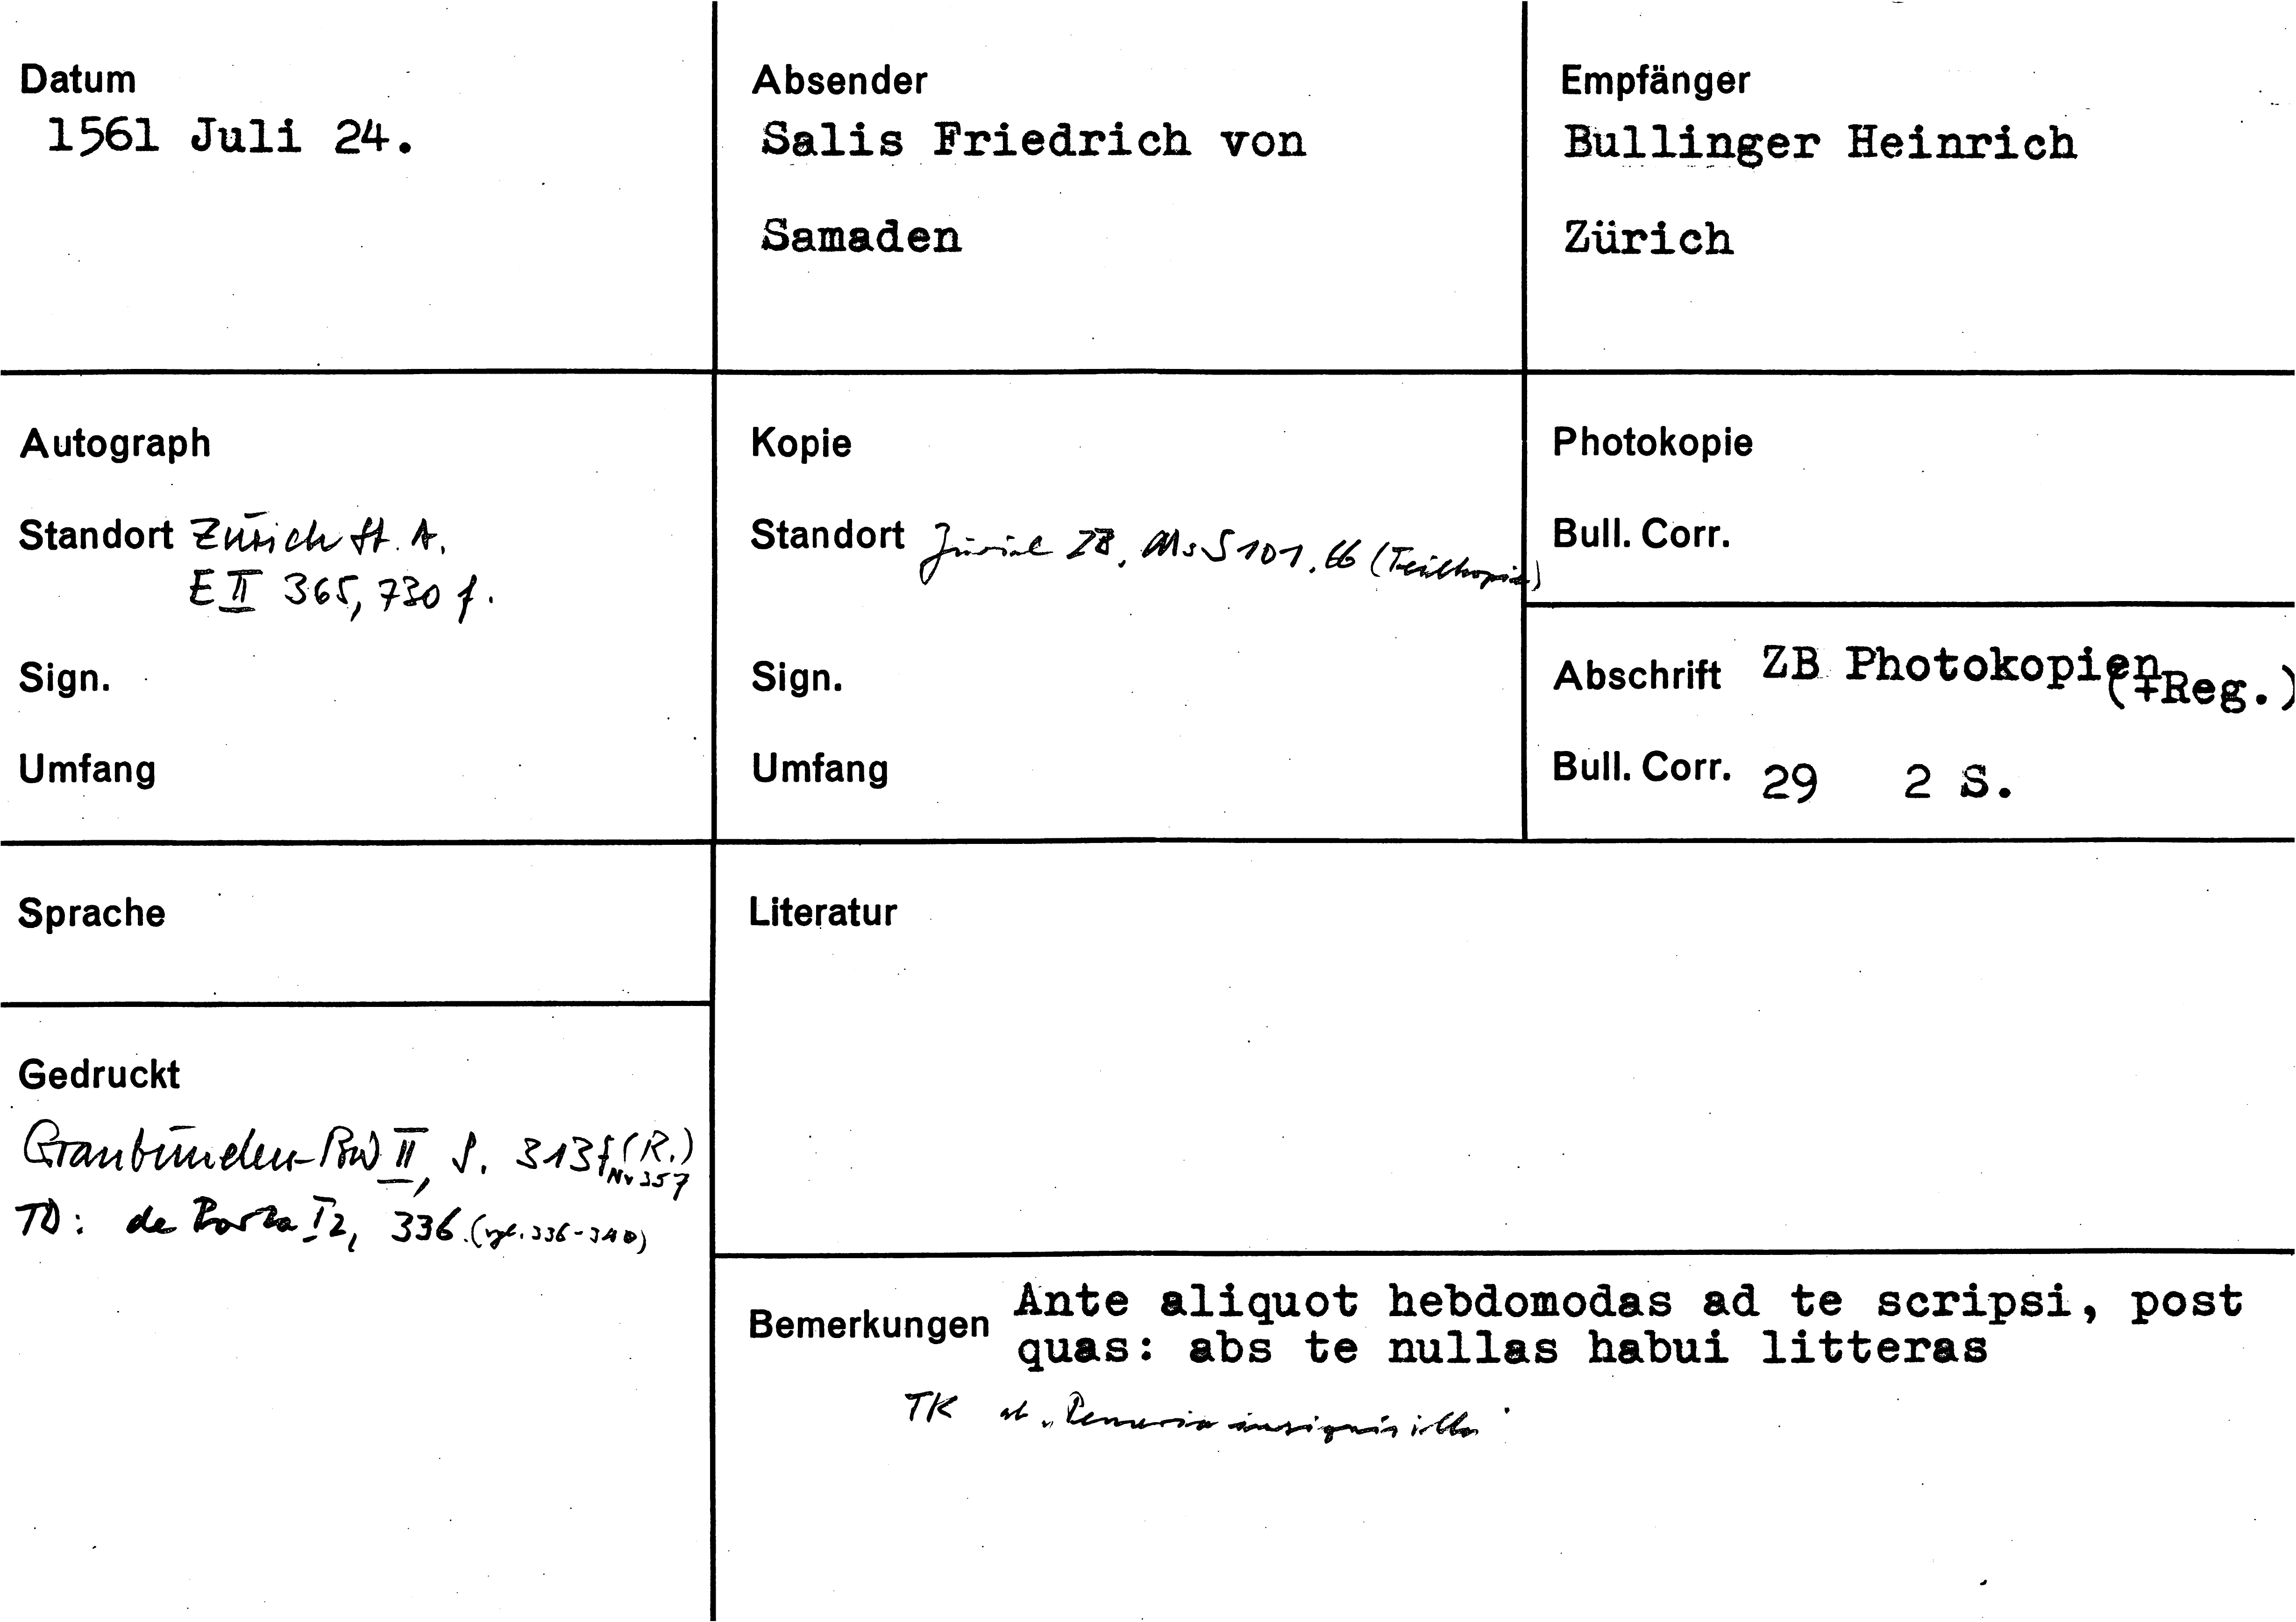 Datum
1561 Juli 24.
Absender
Salis Friedrich von
Samaden
Empfänger
Bullinger Heinrich
Zürich
Autograph
Standort Zürich St. A.
E II 365, 730 f.
Sign.
Umfang
Kopie
Standort Zürich ZB, Ms S 101, 66 (Teilkopie)
Sign.
Umfang
Photokopie
Bull. Corr.
Abschrift ZB Photokopien (+Reg.)
Bull. Corr. 29 2 S.
Sprache
Gedruckt
Graubünden-BW II, S. 313f (R.)
Nr 357
TD: de Porta I 2, 336 (vgl. 336-340)
Literatur
Bemerkungen Ante aliquot hebdomodas ad te scripsi, post
quas: abs te nullas habui litteras
TK ab "Penuria insignis illa"